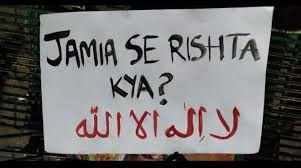 JAMIA SE RISHTA
KYA?
لا إله الا الله